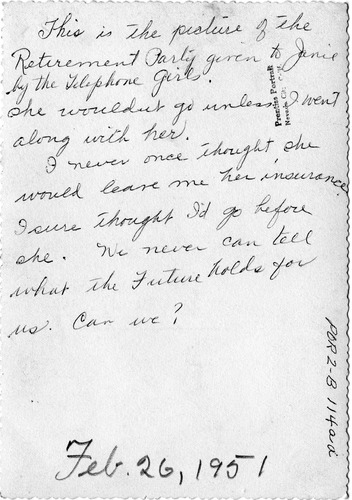 This is the picture of the
Retirement Party given to Janie
by the Telephone Girls.
she wouldut go unless I went
along with her.
I never once thought she
would leave me her insurance.
I sure thought I'd go before
she. We never can tell
what the Future holds for
us. Can we?
Feb. 26, 1951
Prentiss Portrait
Nevada City, Calif.